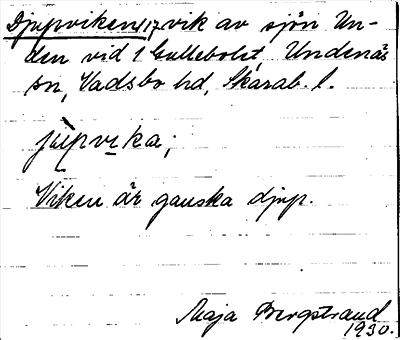 Djupviken 117, vik av sjön Un-
den vid 1 Gullebolet, Undenäs
sn, Vadsbo hd, Skarab. l.
jùpvika;
Viken är ganska djup.
Maja Bergstrand
1930.